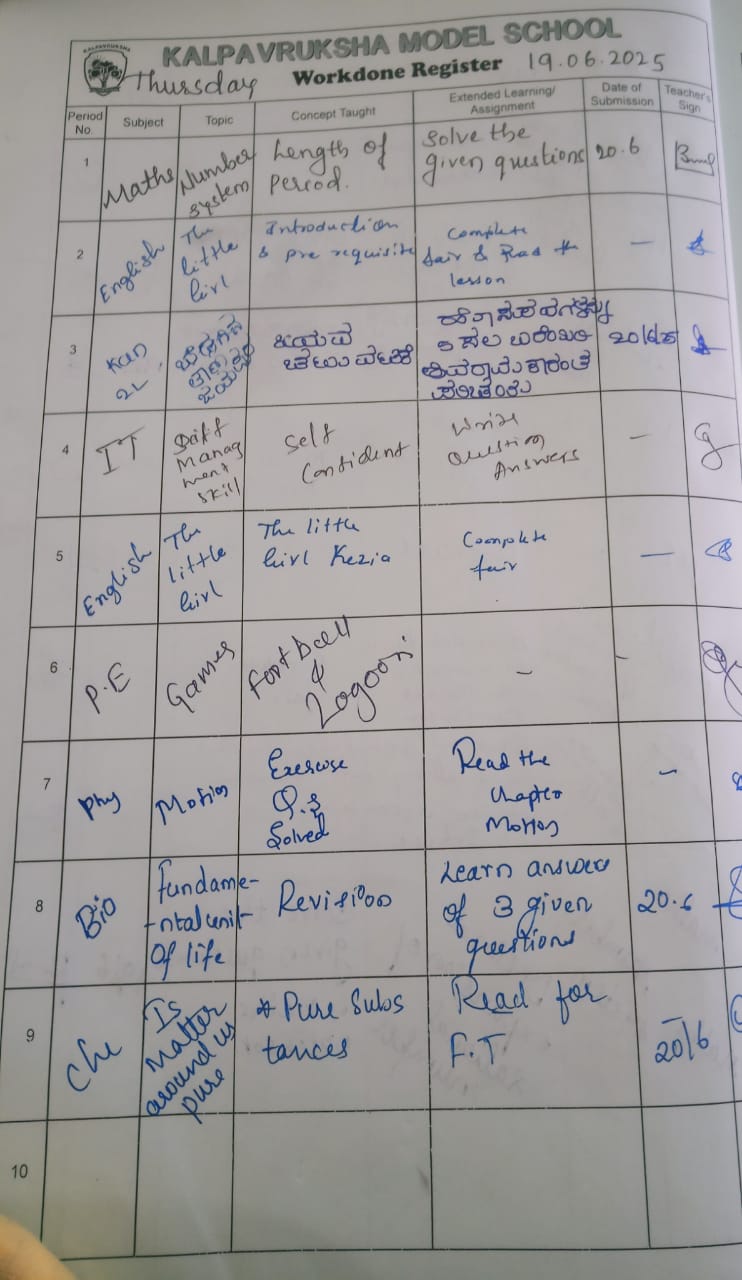 KALPAVRUKSHA
KALPAVRUKSHA MODEL SCHOOL
Thursday Workdone Register 19.06.2025
Period No. Subject Topic Concept Taught Extended Learning/ Assignment Date of Submission Teacher's Sign
1 Maths Number system Length of Period. Solve the given questions 20.6
2 English The little Girl Introduction & pre requisite Complete fair & Read the lesson —
3 Kan 2L 20/6/25
4 IT Manag ment skill Self Confident Write Question Answers —
5 English The little Girl The little Girl Kezia Complete fair —
6 P.E Games Football & Lagoori - -
7 Phy Motion Exercise Q.s Solved Read the chapter Motion -
8 Bio Fundame- -ntal unit Of life Revision Learn answers of 3 given questions 20.6
9 Che Is Matter around us pure * Pure Subs tances Read for F.T. 20/6
10